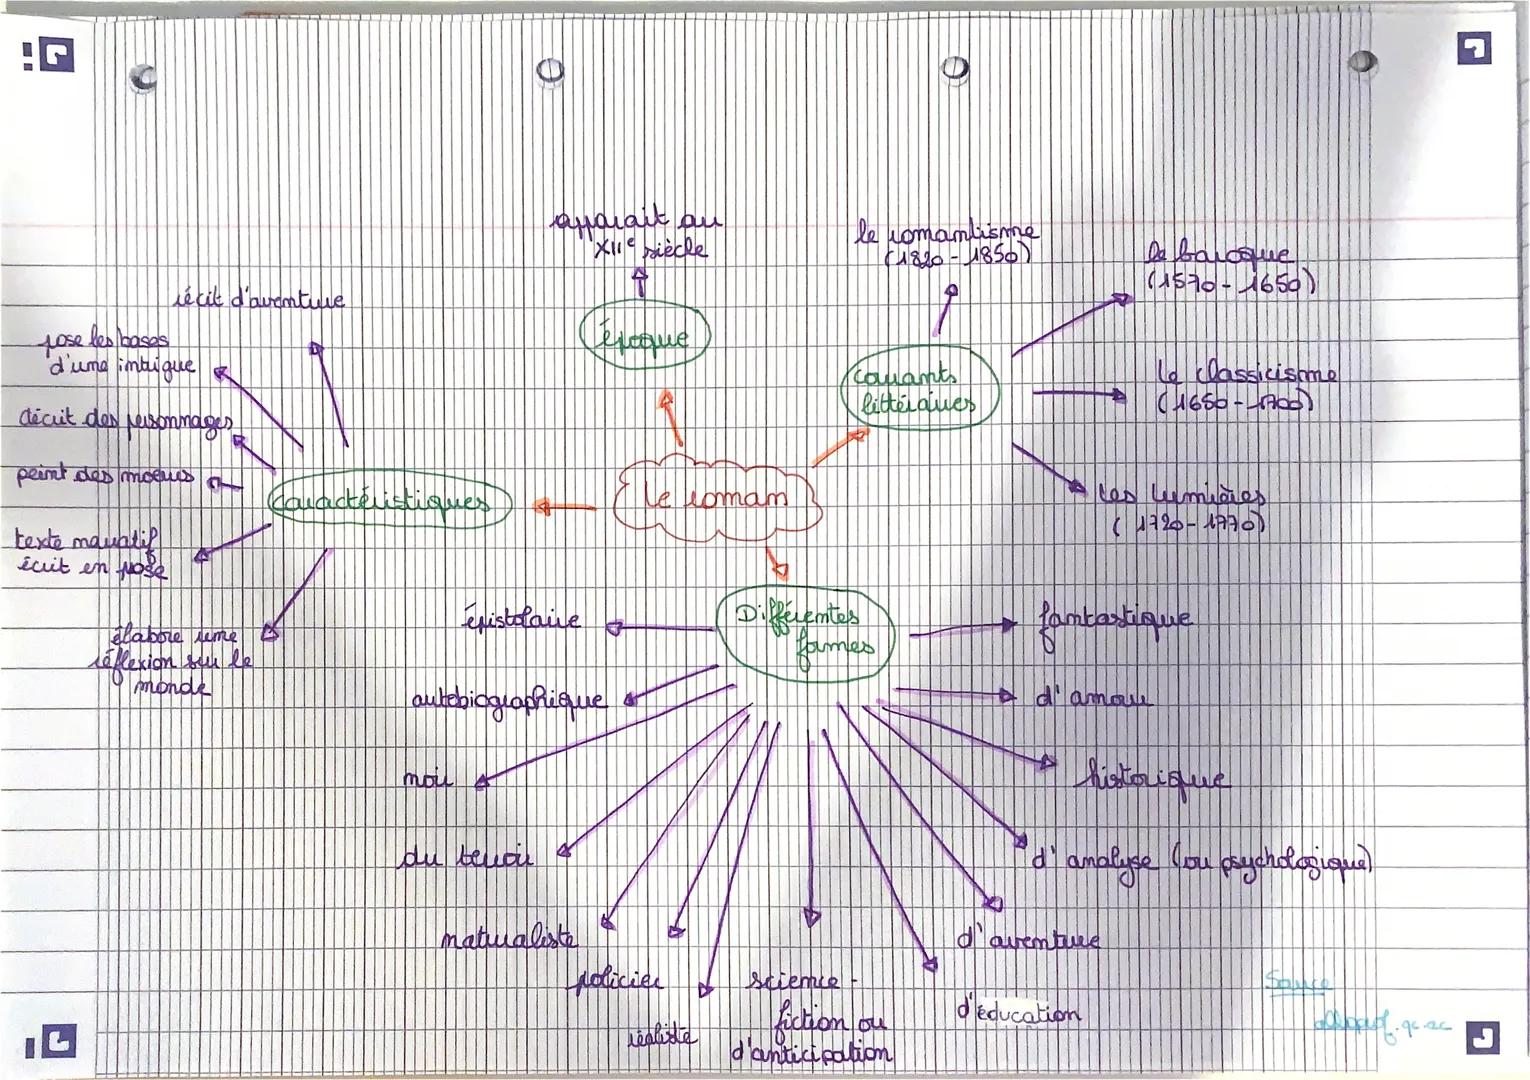 apparait au
XIIe siècle
époque
le romantisme
(1820 - 1850)
le baroque
(1570 - 1650)
Courants
littéraires
le classicisme
(1650 - 1700)
les lumières
(1720 - 1770)
récit d'aventure
pose les bases
d'une intrigue
décrit des personnages
peint des moeurs
caractéristiques
texte narratif
écrit en prose
élabore une
réflexion sur le
monde
le roman
Différentes
formes
épistolaire
autobiographique
noir
du terroir
naturaliste
policier
réaliste
science -
fiction ou
d'anticipation
d'éducation
d'aventure
d'analyse (ou psychologique)
historique
d'amour
fantastique
Source
alloprof.qc.ac